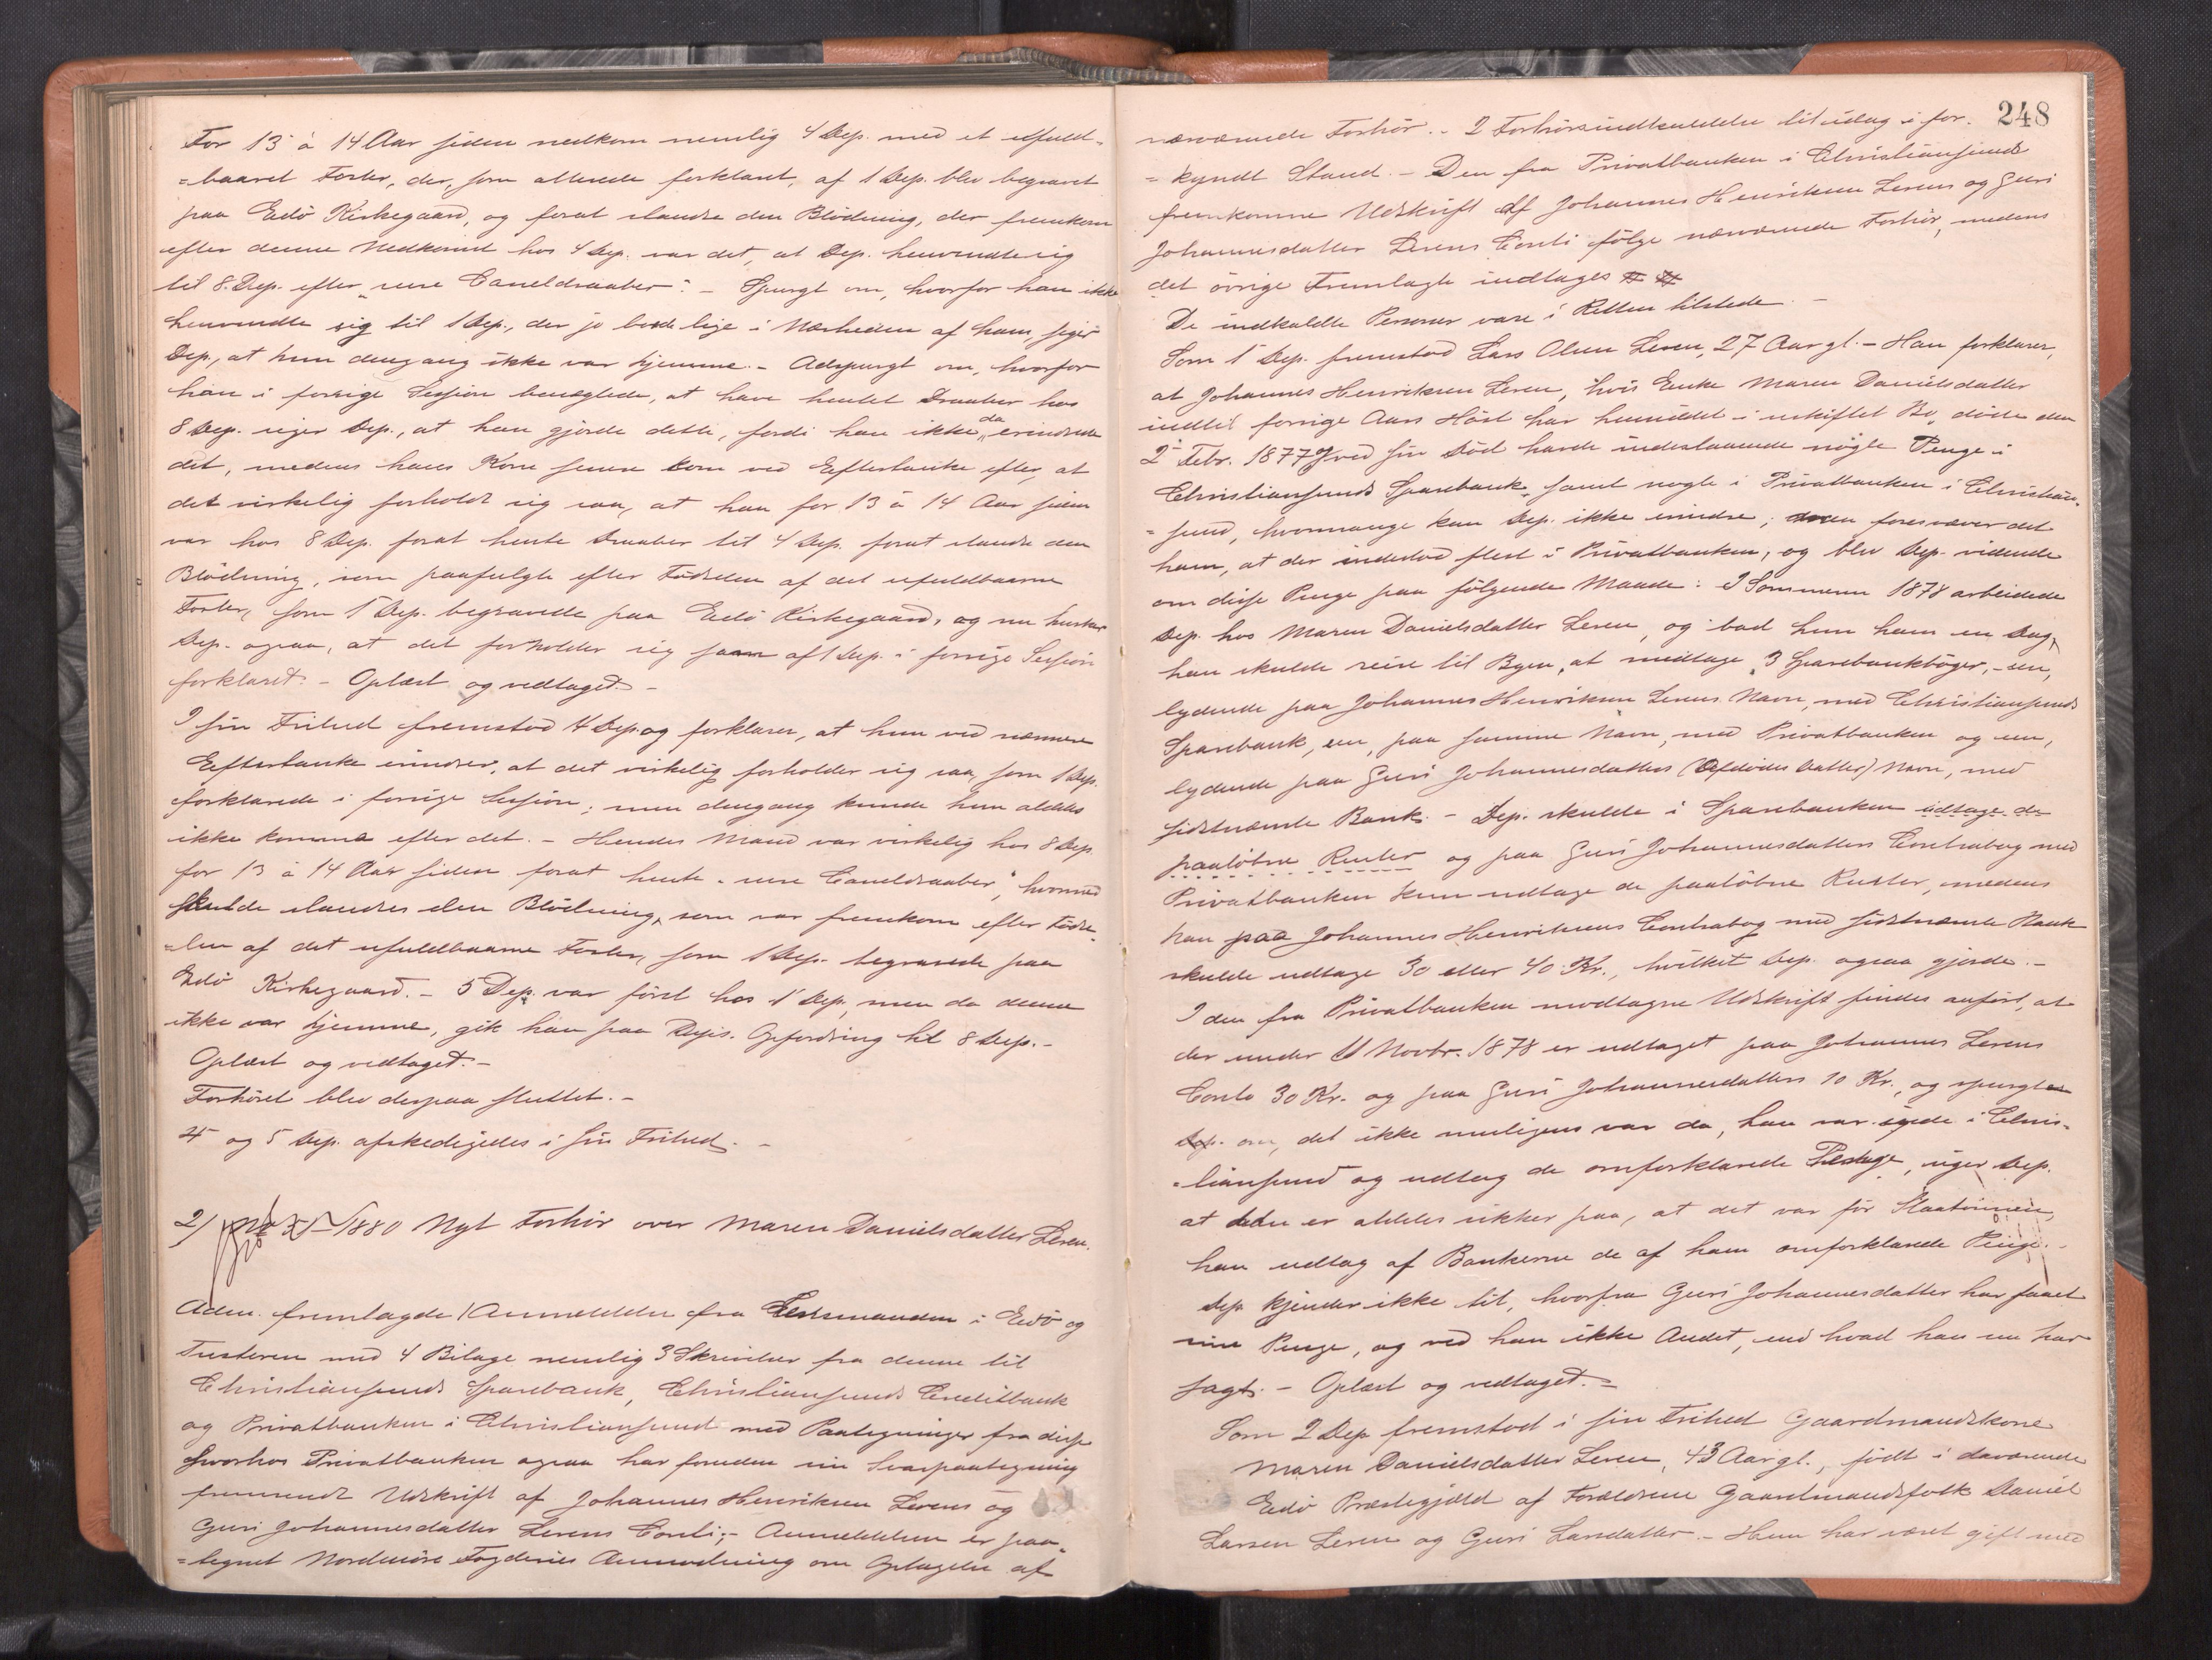 For 13 à 14 Aar siden nedkom nemlig 4 Dep. med et ufuld-
=baaret Foster, der, som allerede forklaret, af 1 Dep. blev begravet
paa Edö Kirkegaard, og forat standse den Blödning, der fremkom
efter denne Nedkomst hos 4 Dep. var det, at Dep. henvendte sig
til 8. Dep. efter "rene Caneldraaber". – Spurgt om, hvorfor han ikke
henvendte sig til 1 Dep., der jo bode lige i Nærheden af ham, siger
Dep., at hun dengang ikke var hjemme. – Adspurgt om, hvorfor
han i forrige Session benægtede, at have hentet Draaber hos
8 Dep. siger Dep., at han gjorde dette, fordi han ikke da erindrede
det, medens hans Kone senere kom ved Eftertanke efter, at
det virkelig forholdt sig saa, at han for 13 à 14 Aar siden
var hos 8 Dep. forat hente Draaber til 4 Dep. forat standse den
Blödning, som paafulgte efter Födselen af det ufuldbaarne
Foster, som 1 Dep. begravede paa Edö Kirkegaard, og nu husker
Dep. ogsaa, at det forholder sig som af 1 Dep. i forrige Session
forklaret. – Oplæst og vedtaget. –
I sin Frihed fremstod 4 Dep og forklarer, at hun ved nærmere
Eftertanke erindrer, at det virkelig forholder sig saa, som 1 Dep.
forklarede i forrige Session; men dengang kunde hun aldeles
ikke komme efter det. – Hendes Mand var virkelig hos 8 Dep.
for 13 à 14 Aar siden forat hente "rene Caneldraaber", hvormed
skulde standses den Blödning, som var fremkom efter Födse-
=len af det ufuldbaarne Foster, som 1 Dep. begravede paa
Edö Kirkegaard. – 5 Dep. var först hos 1 Dep, men da denne
ikke var hjemme, gik han paa Depts. Opfordring til 8 Dep. –
Oplæst og vedtaget. –
Forhöret blev derpaa sluttet. –
4 og 5 Dep. afskedigedes i sin Frihed. –
2) 1880 Nyt Forhör over Maren Danielsdatter Leren.
Adm. fremlagde 1 Anmeldelse fra Lensmanden i Edö og
Tusteren med 4 Bilage nemlig 3 Skrivelser fra denne til
Christiansunds Sparebank, Christiansunds Creditbank
og Privatbanken i Christiansund med Paategninger fra disse
hvorhos Privatbanken ogsaa har foruden sin Svarpaategning
fremsendt Udskrift af Johannes Henriksen Lerens og
Guri Johannesdatter Lerens Conti; – Anmeldelsen er paa-
=tegnet Nordmöre Fogderies Anmodning om Optagelse af
248
nærværende Forhör. – 2 Forhörsindkaldelse til idag i for-
=kyndt Stand. – Den fra Privatbanken i Christiansund
fremkomne Udskrift af Johannes Henriksen Lerens og Guri
Johannesdatter Lerens Conti fölge nærværende Forhör, medens
det övrige Fremlagte indtages
De indkaldte Personer vare i Retten tilstede. –
Som 1 Dep. fremstod Lars Olsen Leren, 27 Aar gl. – Han forklarer,
at Johannes Henriksen Leren, hvis Enke Maren Danielsdatter
indtil forrige Aars Höst har hensiddet i uskiftet Bo, döde den
2 Febr. 1877 og ved sin Död havde indestaaende nogle Penge i
Christiansunds Sparebank samt nogle i Privatbanken i Christian-
=sund, hvormange kan Dep. ikke erindre; men foresvæver det
ham, at der indestod flest i Privatbanken, og blev Dep. vidende
om disse Penge paa fölgende Maade: I Sommeren 1878 arbeidede
Dep. hos Maren Danielsdatter Leren, og bad hun ham en Dag,
han skulde reise til Byen, at medtage 3 Sparebankböger, – en,
lydende paa Johannes Henriksen Lerens Navn, med Christiansunds
Sparebank, en, paa samme Navn, med Privatbanken og en,
lydende paa Guri Johannesdatters (Afdödes Datter) Navn, med
sidstnævnte Bank. – Dep. skulde i Sparebanken udtage de
paalöbne Renter og paa Guri Johannesdatters Contrabog med
Privatbanken kun udtage de paalöbne Renter, medens
han paa Johannes Henriksens Contrabog med sidstnævnte Bank
skulde udtage 30 eller 40 Kr., hvilket Dep. ogsaa gjorde. –
I den fra Privatbanken modtagne Udskrift findes anfört, at
der under 11 Novbr. 1878 er udtaget paa Johannes Lerens
Conto 30 Kr. og paa Guri Johannesdatters 10 Kr., og spurgt
Dep. om, det ikke muligens var da, han var inde i Chris-
=tiansund og udtog de omforklarede Penge, siger Dep.
at han er aldeles sikker paa, at det var för Slaatönnen,
han udtog af Bankerne de af ham omforklarede Penge. –
Dep kjender ikke til, hvorfra Guri Johannesdatter har faaet
sine Penge, og ved han ikke Andet, end hvad han nu har
sagt. – Oplæst og vedtaget. –
Som 2 Dep fremstod i sin Frihed Gaardmandskone
Maren Danielsdatter Leren, 43 Aar gl., født i daværende
Edö Præstegjæld af Forældrene Gaardmandsfolk Daniel
Larsen Leren og Guri Larsdatter. – Hun har været gift med